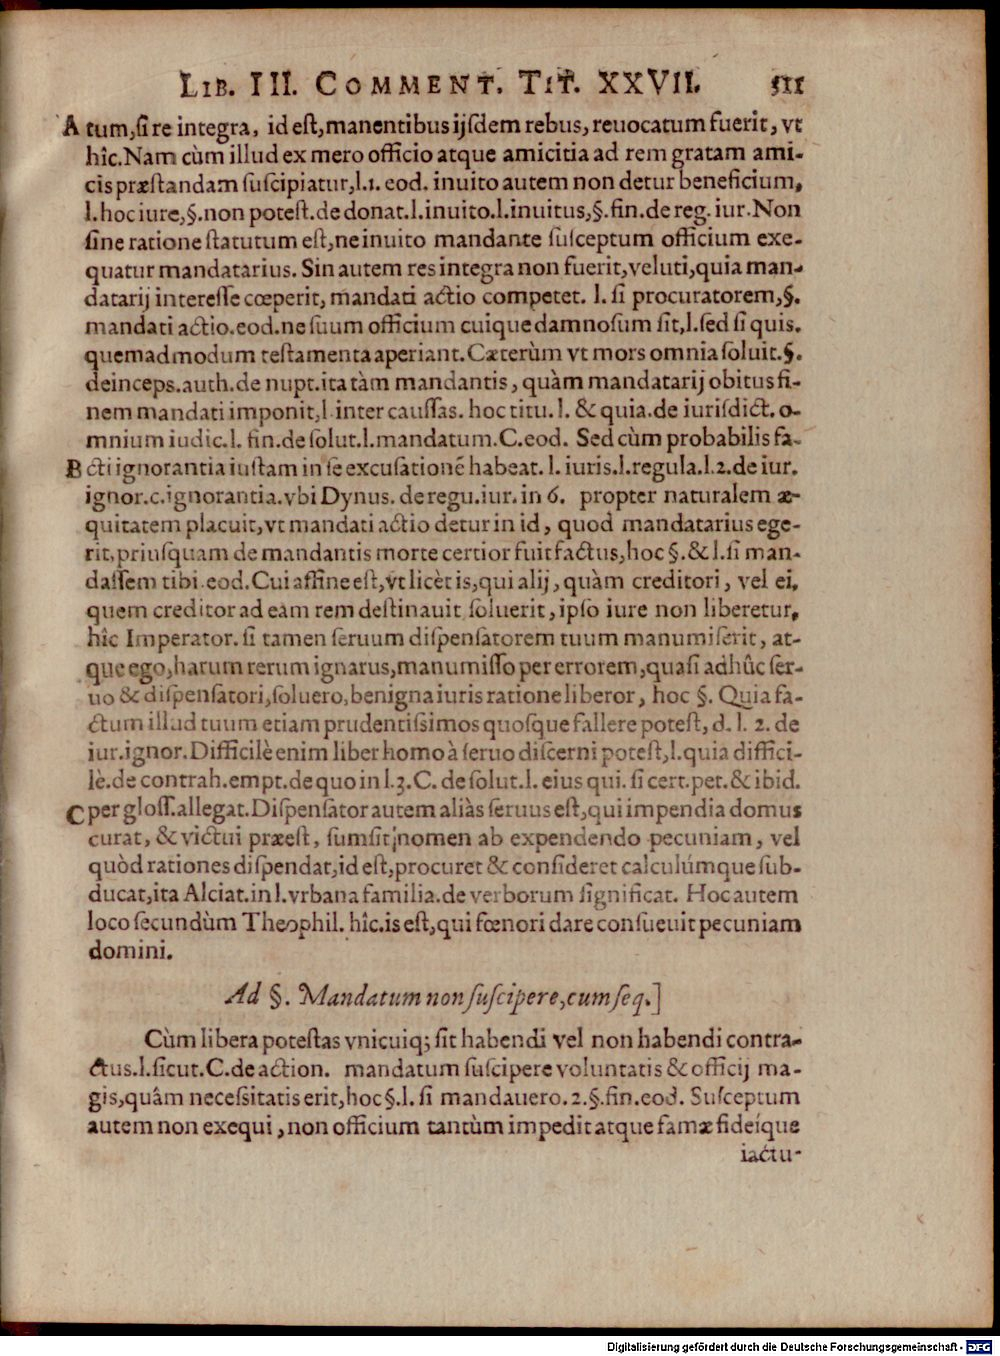 LIB. III. COMMENT. TIT. XXVII. 511
A tum, si re integra, id est, manentibus ijsdem rebus, reuocatum fuerit, vt
hîc. Nam cùm illud ex mero officio atque amicitia ad rem gratam ami-
cis præstandam suscipiatur, l.1. eod. inuito autem non detur beneficium,
l. hoc iure, §. non potest. de donat. l. inuito. l. inuitus, §. fin. de reg. iur. Non
sine ratione statutum est, ne inuito mandante susceptum officium exe-
quatur mandatarius. Sin autem res integra non fuerit, veluti, quia man-
datarij interesse cœperit, mandati actio competet. l. si procuratorem, §.
mandati actio. eod. ne suum officium cuique damnosum sit, l. sed si quis.
quemadmodum testamenta aperiant. Cæterùm vt mors omnia soluit. §.
deinceps. auth. de nupt. ita tàm mandantis, quàm mandatarij obitus fi-
nem mandati imponit, l. inter caussas. hoc titu. l. & quia. de iurisdict. o-
mnium iudic. l. fin. de solut. l. mandatum. C. eod. Sed cùm probabilis fa-
B cti ignorantia iustam in se excusationē habeat. l. iuris. l. regula. l. 2. de iur.
ignor. c. ignorantia. vbi Dynus. de regu. iur. in 6. propter naturalem æ-
quitatem placuit, vt mandati actio detur in id, quod mandatarius ege-
rit, priusquam de mandantis morte certior fuit factus, hoc §. & l. si man-
dassem tibi. eod. Cui affine est, vt licèt is, qui alij, quàm creditori, vel ei,
quem creditor ad eam rem destinauit soluerit, ipso iure non liberetur,
hîc Imperator. si tamen seruum dispensatorem tuum manumiserit, at-
que ego, harum rerum ignarus, manumisso per errorem, quasi adhûc ser-
uo & dispensatori, soluero, benigna iuris ratione liberor, hoc §. Quia fa-
ctum illud tuum etiam prudentissimos quosque fallere potest, d. l. 2. de
iur. ignor. Difficilè enim liber homo à seruo discerni potest, l. quia diffici-
lè. de contrah. empt. de quo in l. 3. C. de solut. l. eius qui. si cert. pet. & ibid.
C per gloss. allegat. Dispensator autem aliàs seruus est, qui impendia domus
curat, & victui præest, sumsit nomen ab expendendo pecuniam, vel
quòd rationes dispendat, id est, procuret & consideret calculúmque sub-
ducat, ita Alciat. in l. vrbana familia. de verborum significat. Hoc autem
loco secundùm Theophil. hîc. is est, qui fœnori dare consueuit pecuniam
domini.
Ad §. Mandatum non suscipere, cum seq.]
Cùm libera potestas vnicuiq; sit habendi vel non habendi contra-
ctus. l. sicut. C. de action. mandatum suscipere voluntatis & officij ma-
gis, quâm necessitatis erit, hoc §. l. si mandauero. 2. §. fin. eod. Susceptum
autem non exequi, non officium tantùm impedit atque famæ fideíque
iactu-
Digitalisierung gefördert durch die Deutsche Forschungsgemeinschaft - DFG